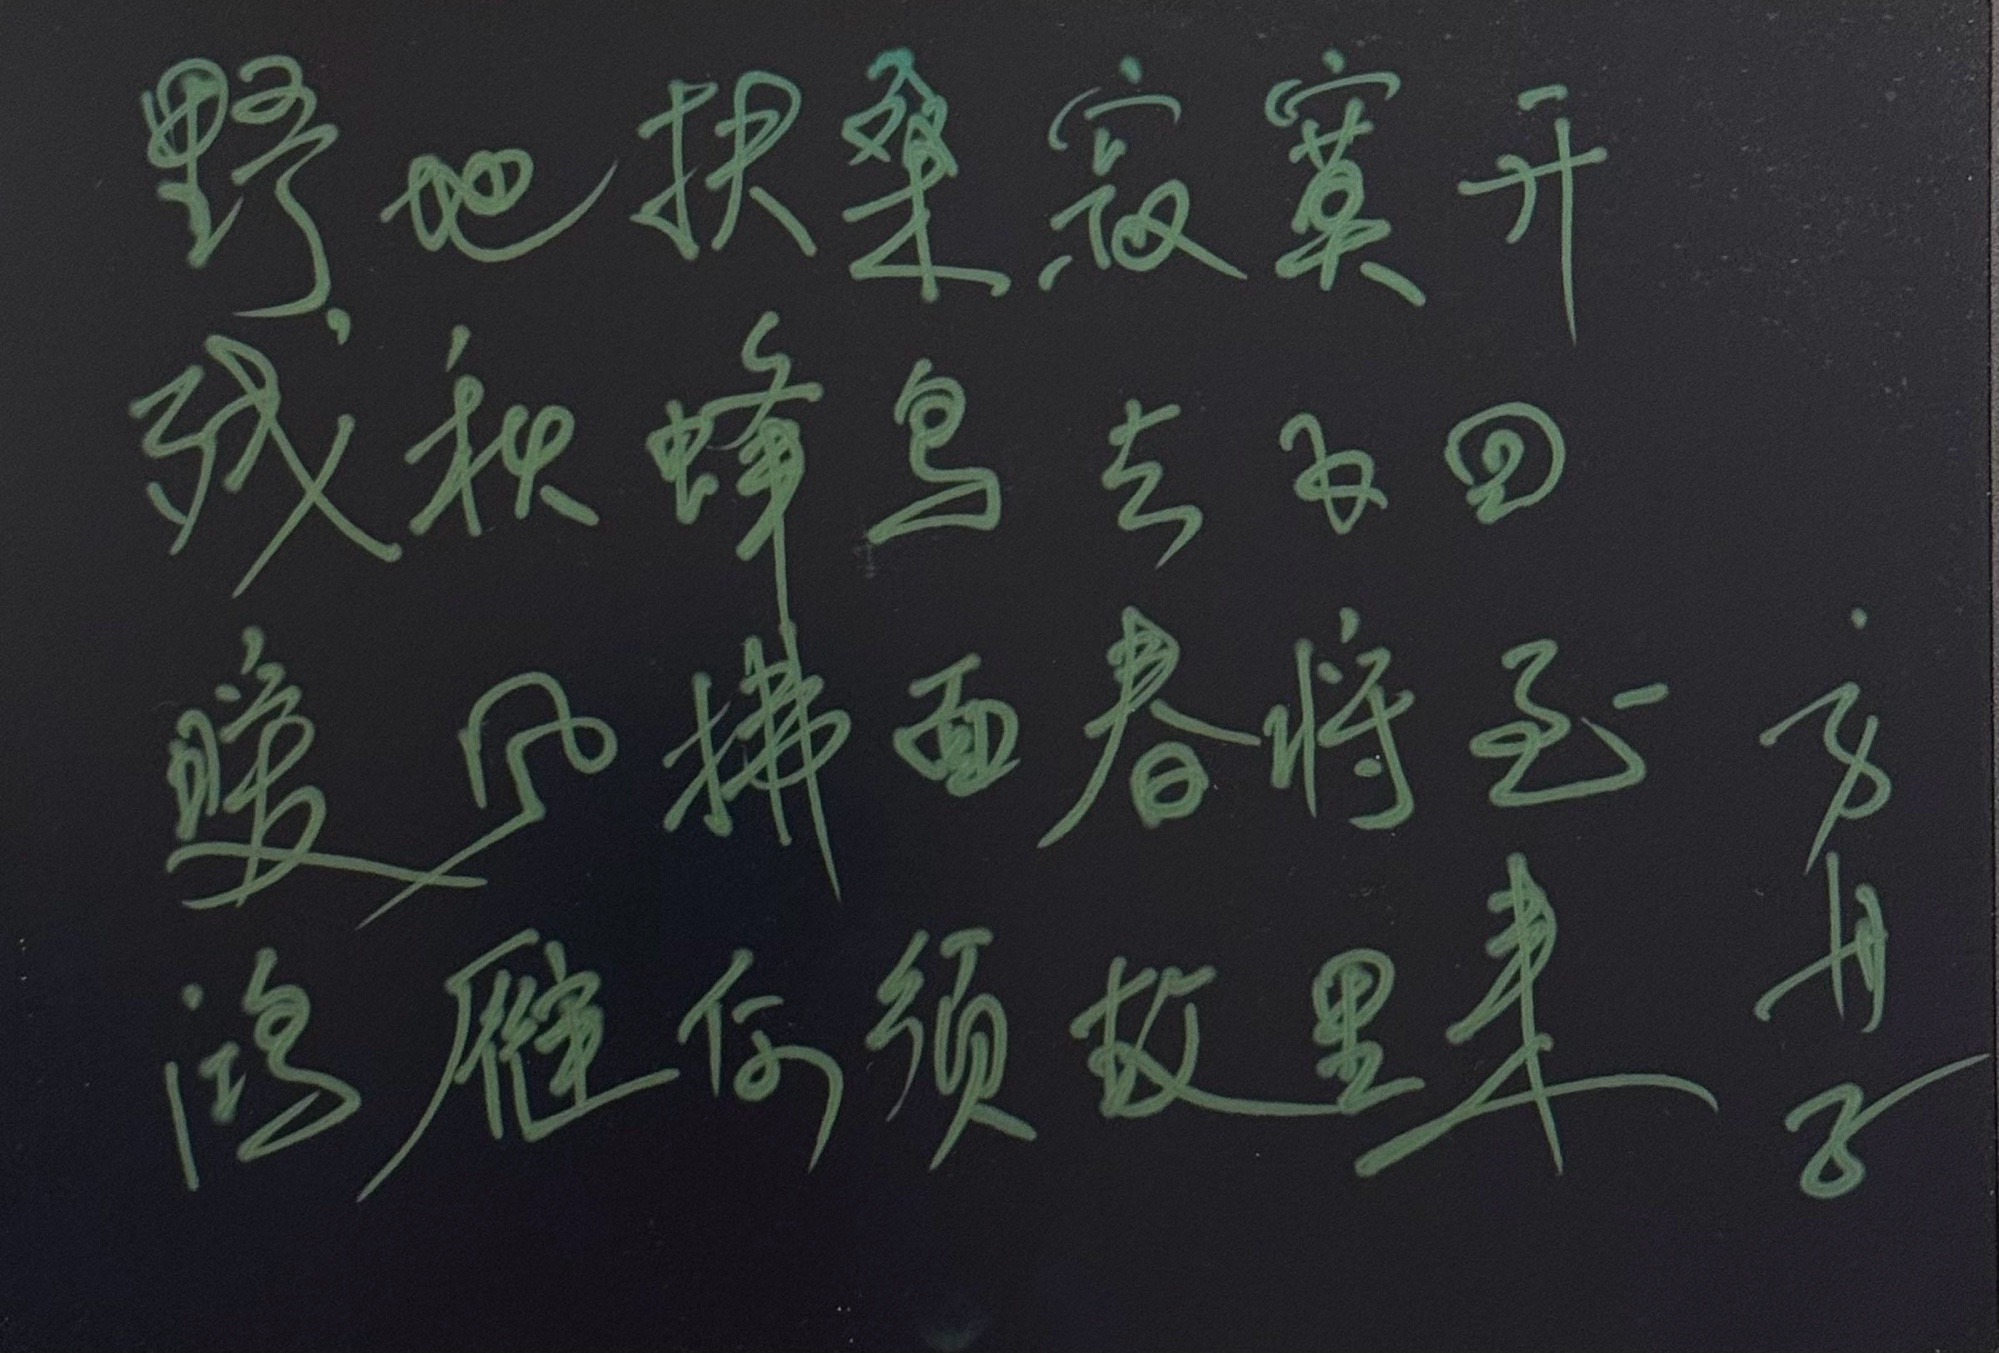 野地扶桑寂寞开
残秋蜂鸟去不回
暖风拂面春将至
鸿雁何须故里来